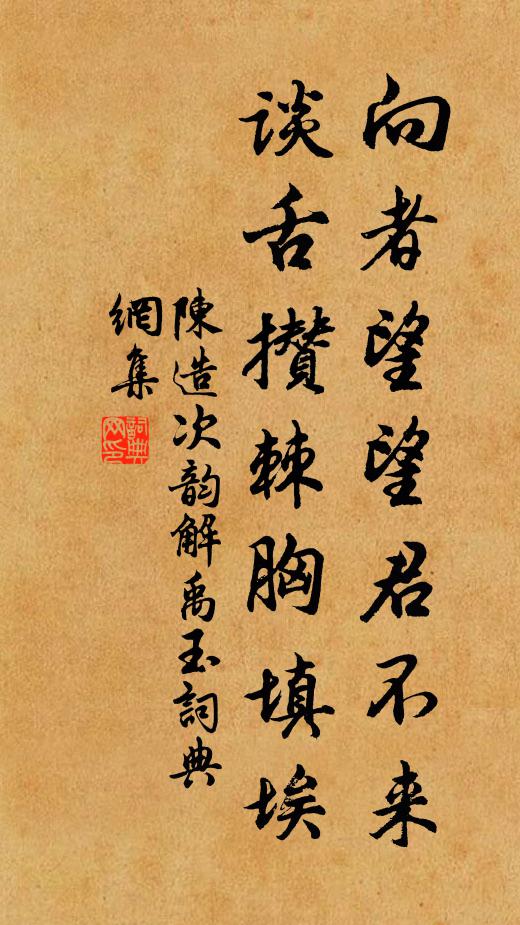 向者望望君不来
谈舌攒棘胸填埃
陳造次韵解禹玉詞典
網集
詞典
网印